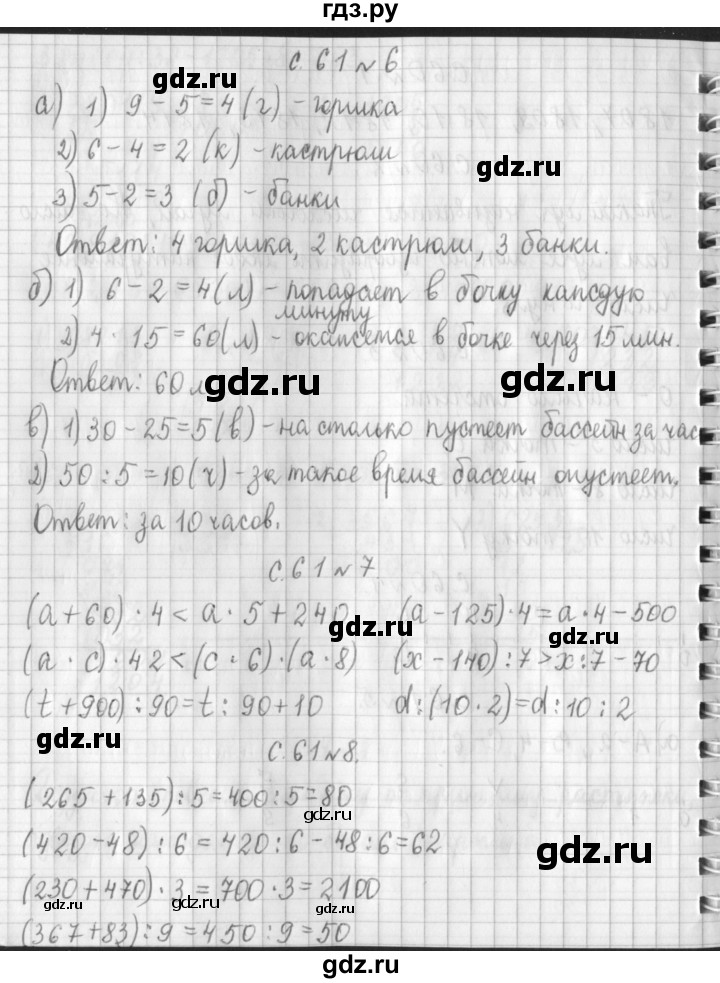 гдз.ру
с. 61 № 6
а) 1) 9 - 5 = 4 (г) - горшка
2) 6 - 4 = 2 (к) - кастрюли
3) 5 - 2 = 3 (б) - банки
Ответ: 4 горшка, 2 кастрюли, 3 банки.
б) 1) 6 - 2 = 4 (л) - попадает в бочку каждую
минуту
2) 4 · 15 = 60 (л) - окажется в бочке через 15 мин.
Ответ: 60 л
в) 1) 30 - 25 = 5 (в) - на столько пустеет бассейн за час
2) 50 : 5 = 10 (ч) - за такое время бассеин опустеет.
Ответ: за 10 часов.
с. 61 № 7
(a + 60) · 4 < a · 5 + 240 (a - 125) · 4 = a · 4 - 500
(a · c) · 42 < (c · 6) · (a · 8) (x - 140) : 7 > x : 7 - 70
(t + 900) : 90 = t : 90 + 10 d : (10 · 2) = d : 10 : 2
с. 61 № 8.
(265 + 135) : 5 = 400 : 5 = 80
(420 - 48) : 6 = 420 : 6 - 48 : 6 = 62
(230 + 470) · 3 = 700 · 3 = 2100
(367 + 83) : 9 = 450 : 9 = 50
gdz.ru
gdz.ru
gdz.ru
gdz.ru
gdz.ru
gdz.ru
gdz.ru
gdz.ru
gdz.ru
gdz.ru
gdz.ru
gdz.ru
gdz.ru
gdz.ru